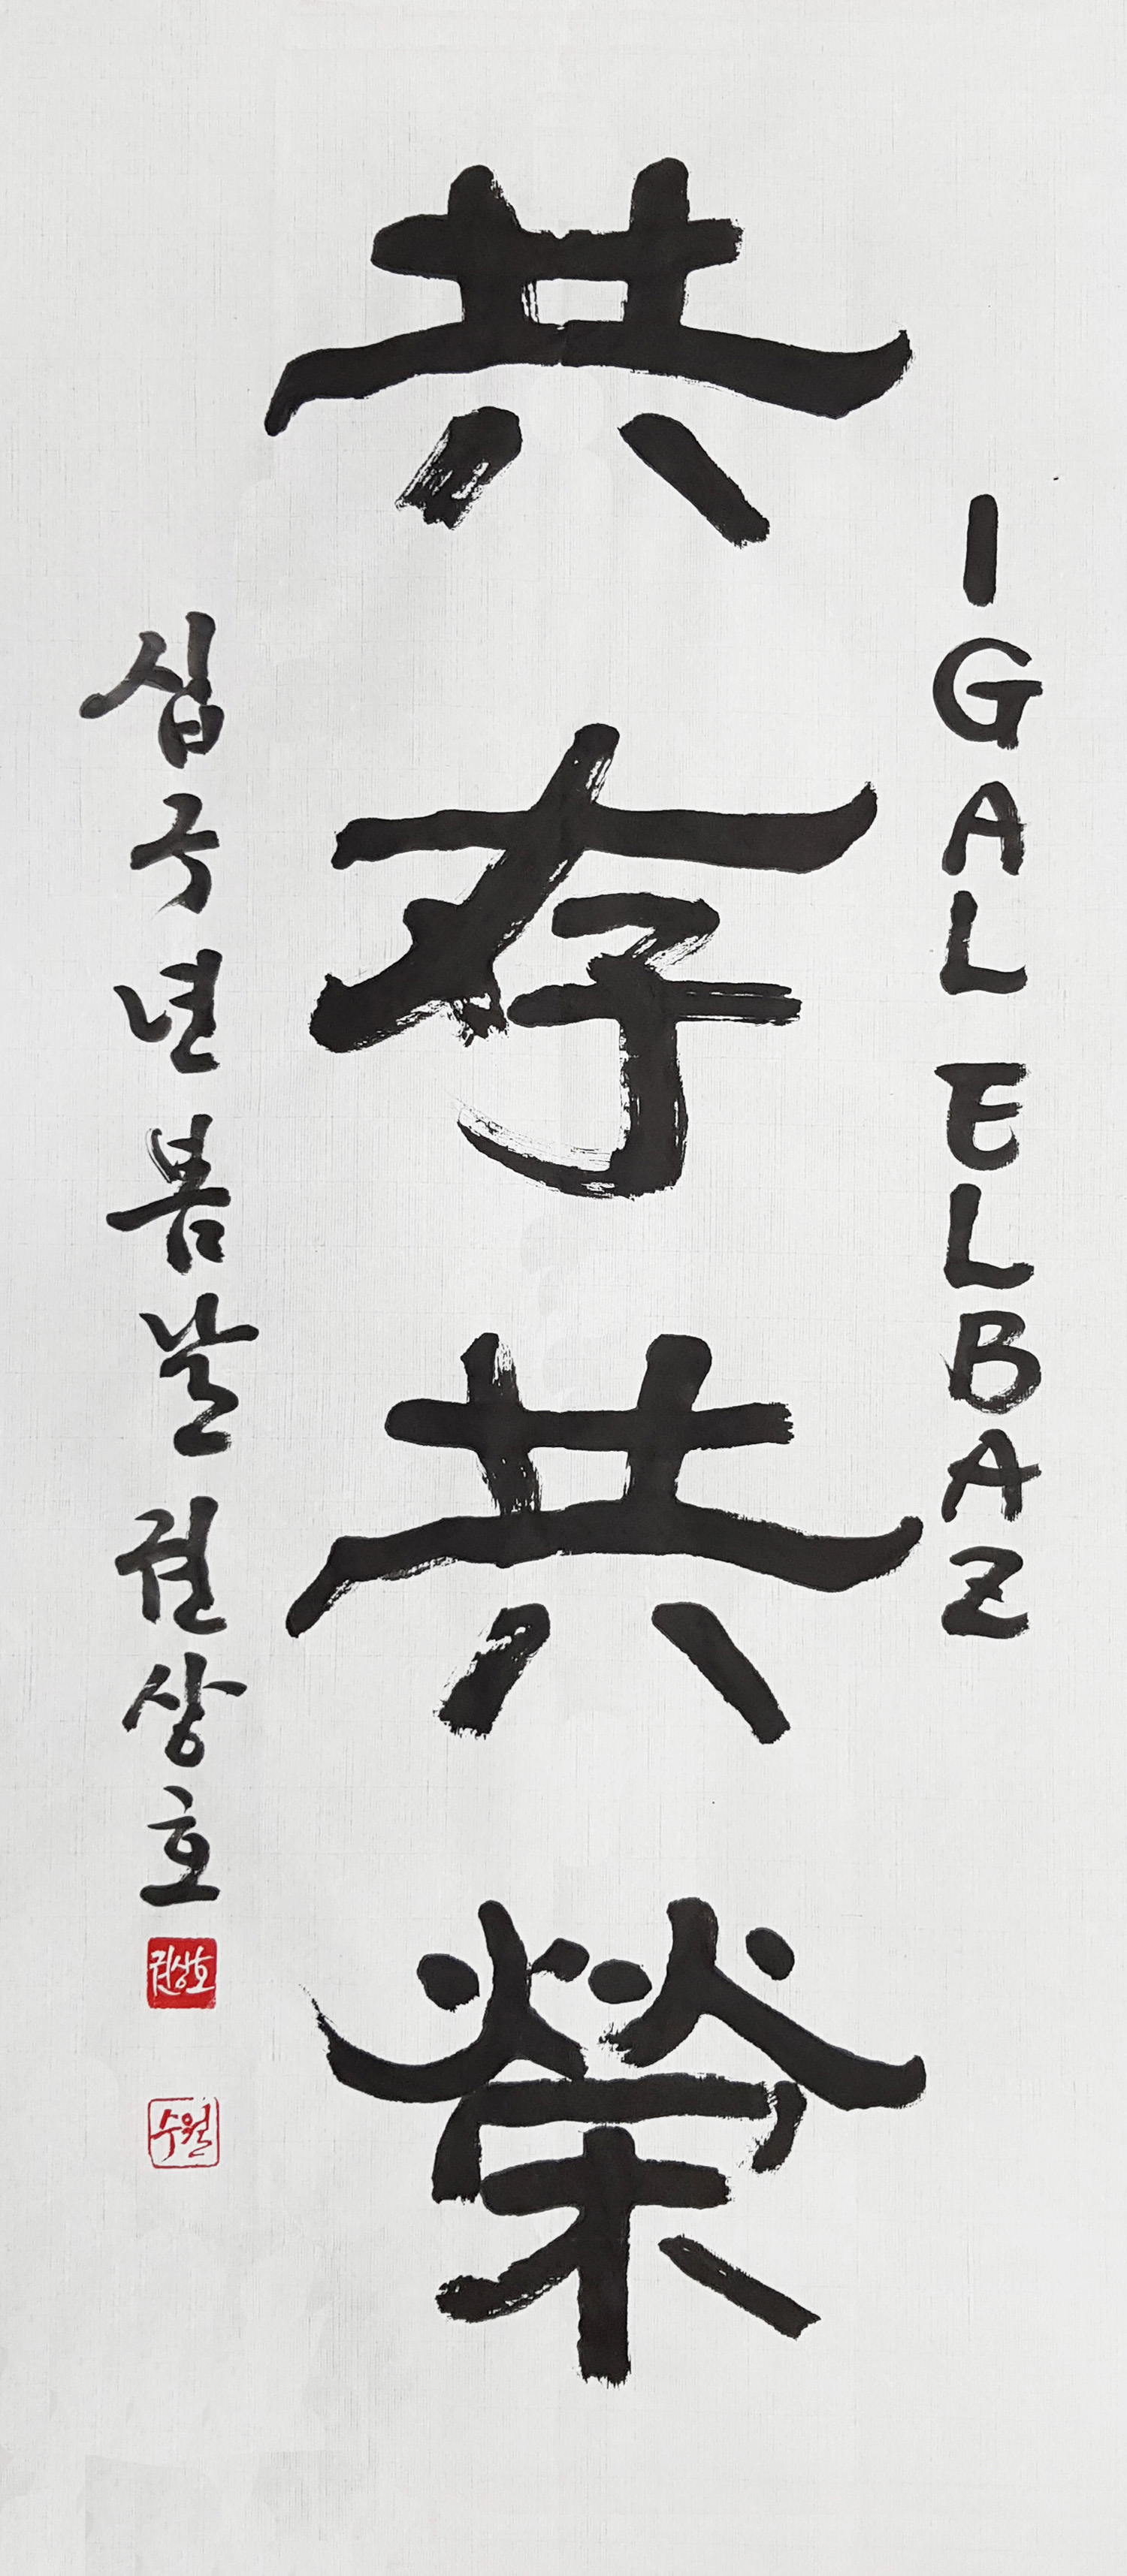 IGAL ELBAZ
共存共榮
십구년봄날 권상호
권상호
수월